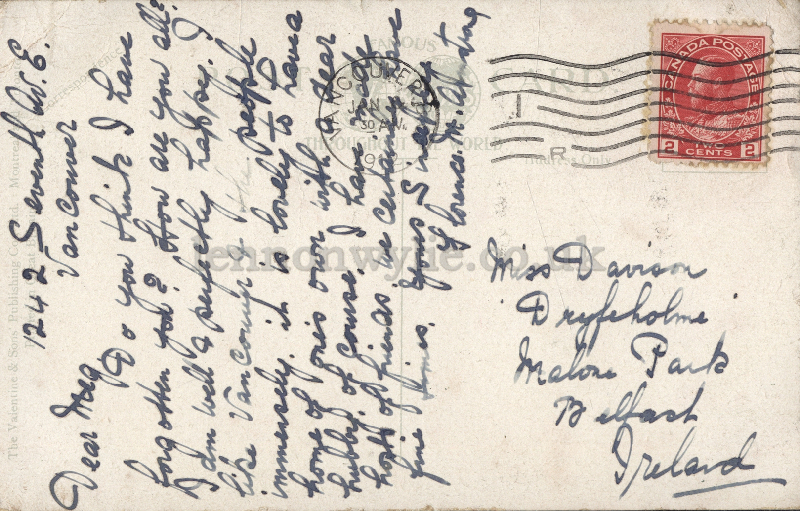 1242 Seventh Av. E.
Vancouver
Dear Meg
Do you think I have
forgotten you? How are you all?
I am well & perfectly happy. I
like Vancouver & the people
immensely. it is lovely to have a
home of one's own with a dear
hubby, of course. I have made
hosts of friends. we certainly have
fine times. Yours Sincerely
Florence M.
Miss Davison
Dryfeholme
Malone Park
Belfast
Ireland
VANCOUVER
JAN
30 AM
19
CANADA POSTAGE
2 TWO CENTS 2
FAMOUS
THROUGHOUT THE WORLD
POST CARD
Address Only
The Valentine & Sons' Publishing Co., Ltd. Montreal
lennonwylie.co.uk